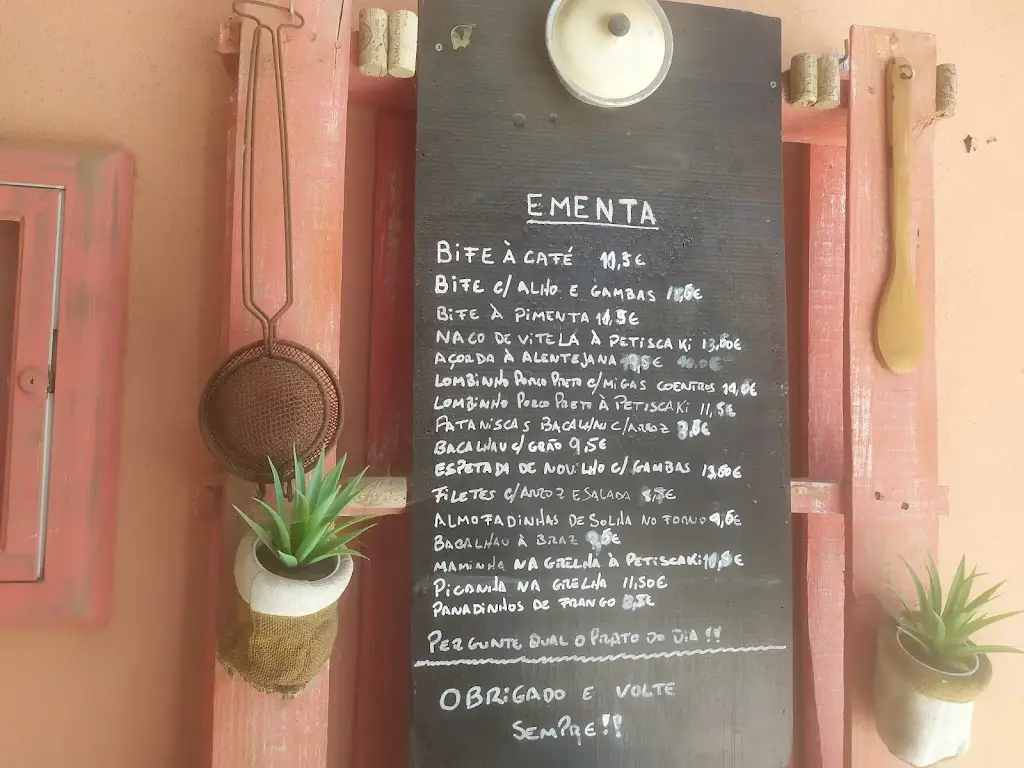 EMENTA
BIFE À CAFÉ
BIFE C/ ALHO E GAMBAS
BIFE À PIMENTA
NACO DE VITELA À PETISCAKI 13,00€
AÇORDA À ALENTEJANA
LOMBINHO PORCO PRETO C/ MIGAS COENTROS
LOMBINHO PORCO PRETO À PETISCAKI 11,5€
PATANISCAS BACALHAU C/ARROZ
BACALHAU C/ GRÃO 9,5€
ESPETADA DE NOVILHO C/ GAMBAS 13,00€
FILETES C/ARROZ E SALADA
ALMOFADINHAS DE SOLHA NO FORNO
BACALHAU À BRAZ
MAMINHA NA GRELHA À PETISCAKI
PICANHA NA GRELHA 11,50€
PANADINHOS DE FRANGO
PERGUNTE QUAL O PRATO DO DIA!!
OBRIGADO E VOLTE
SEMPRE!!